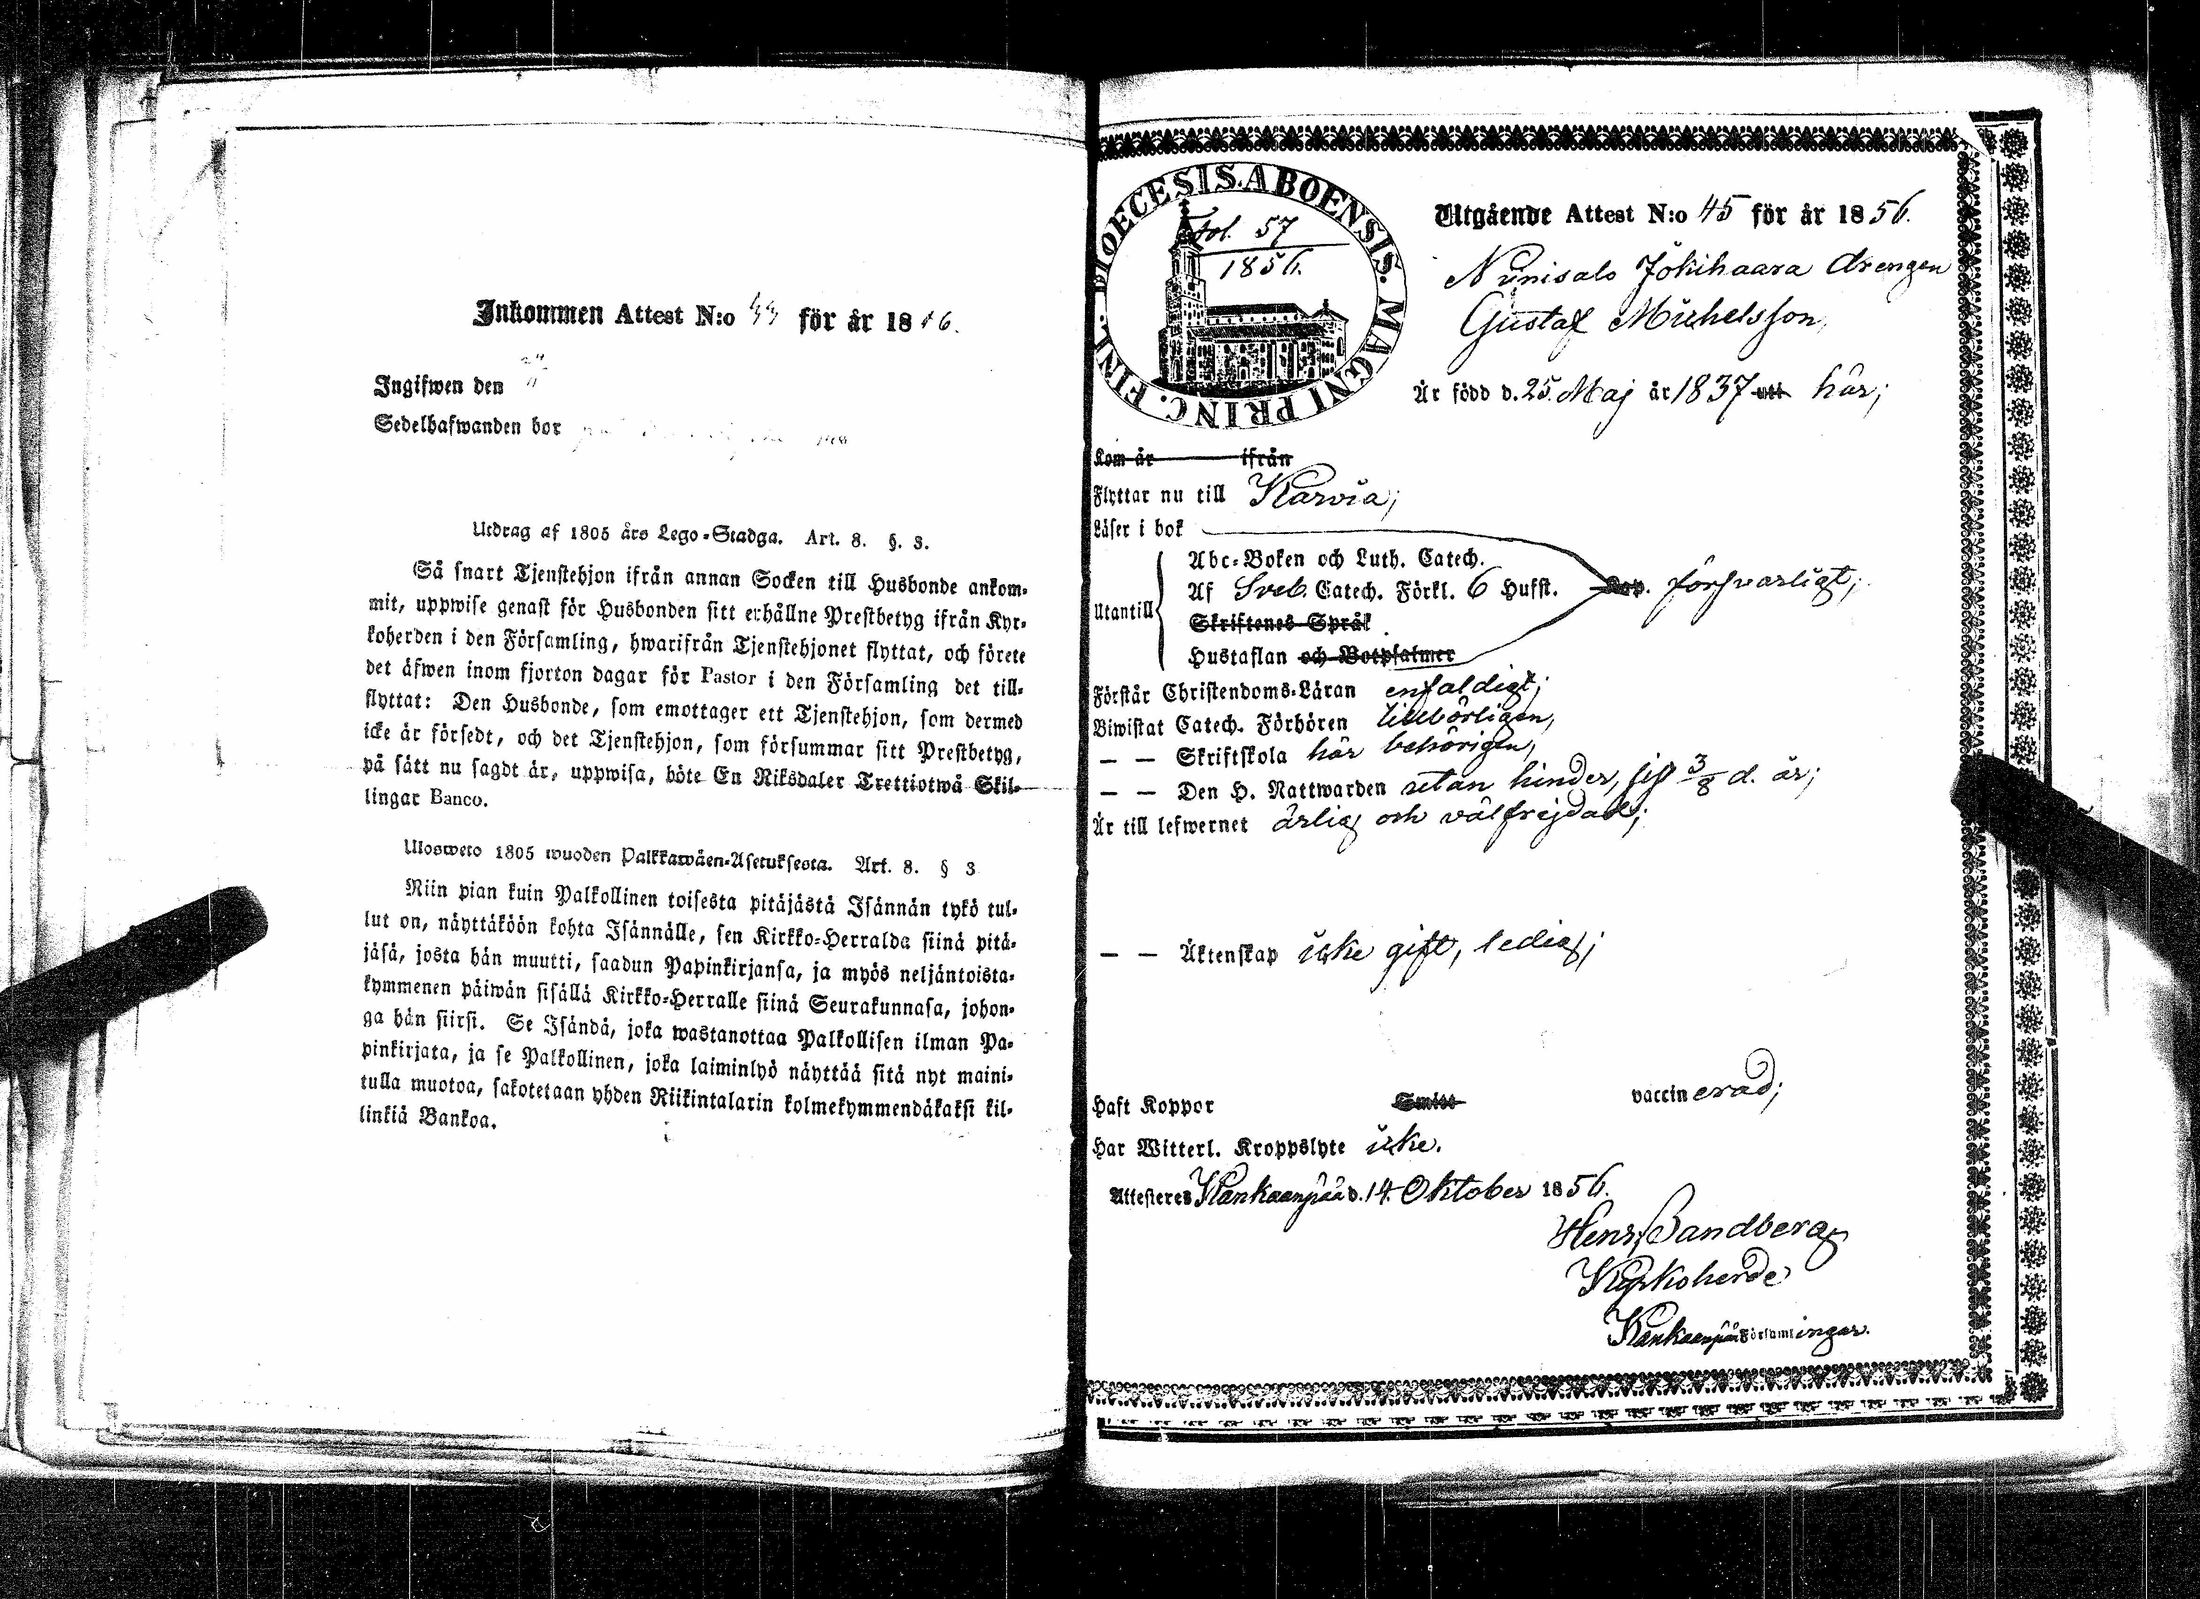 Inkommen Attest N:o för år 18
Ingifwen den
Sedelhafwanden bor
Utdrag af 1805 års Lego-Stadga. Art. 8. §. 3.
Så snart Tjenstehjon ifrån annan Socken till Husbonde ankom-
mit, uppwise genast för Husbonden sitt erhållne Prestbetyg ifrån Kyr-
koherden i den Församling, hwarifrån Tjenstehjonet flyttat, och förete
det äfwen inom fjorton dagar för Pastor i den Församling det till-
flyttat: Den Husbonde, som emottager ett Tjenstehjon, som dermed
icke är försedt, och det Tjenstehjon, som försummar sitt Prestbetyg,
på sätt nu sagdt är, uppwisa, böte En Riksdaler Trettiotwå Skil-
lingar Banco.
Ulosweto 1805 wuoden Palkkawäen-Asetuksesta. Art. 8. § 3
Niin pian kuin Palkollinen toisesta pitäjästä Isännän tykö tul-
lut on, näyttäköön kohta Isännälle, sen Kirkko-Herralda siinä pitä-
jäsä, josta hän muutti, saadun Papinkirjansa, ja myös neljäntoista-
kymmenen päiwän sisällä Kirkko-Herralle siinä Seurakunnasa, johon-
ga hän siirsi. Se Isändä, joka wastanottaa Palkollisen ilman Pa-
pinkirjata, ja se Palkollinen, joka laiminlyö näyttää sitä nyt maini-
tulla muotoa, sakotetaan yhden Riikintalarin kolmekymmendäkaksi kil-
linkiä Bankoa.
DIOECESIS. ABOENSIS. MAGNI PRINC. FINL.
Fol. 57
1856.
Utgående Attest N:o 45 för år 1856.
Nünisalo Jokihaara drengen
Gustaf Michelsson,
Är född d. 25. Maj år 1837 utt här;
Kom år ifrån
Flyttar nu till Karvia;
Läser i bok
Abc-Boken och Luth. Catech.
Utantill Af Sveb. Catech. Förkl. 6 Hufst. Kap. försvarligt;
Skriftenes Språk
Hustaflan och Botpsalmer
Förstår Christendoms-Läran enfaldigt;
Biwistat Catech. Förhören tillbörligen,
— — Skriftskola här behörigen,
— — Den H. Nattwarden utan hinder, sist 3/8 d. år;
Är till lefwernet ärlig och välfrejdad;
— — Äktenskap icke gift, ledig;
Haft Koppor Smitt vaccinerad;
Har Witterl. Kroppslyte icke.
Attesteres Kankaanpää d. 14. Oktober 1856.
Henr. Sandberg
Kyrkoherde
Kankaanpää Församlingar.